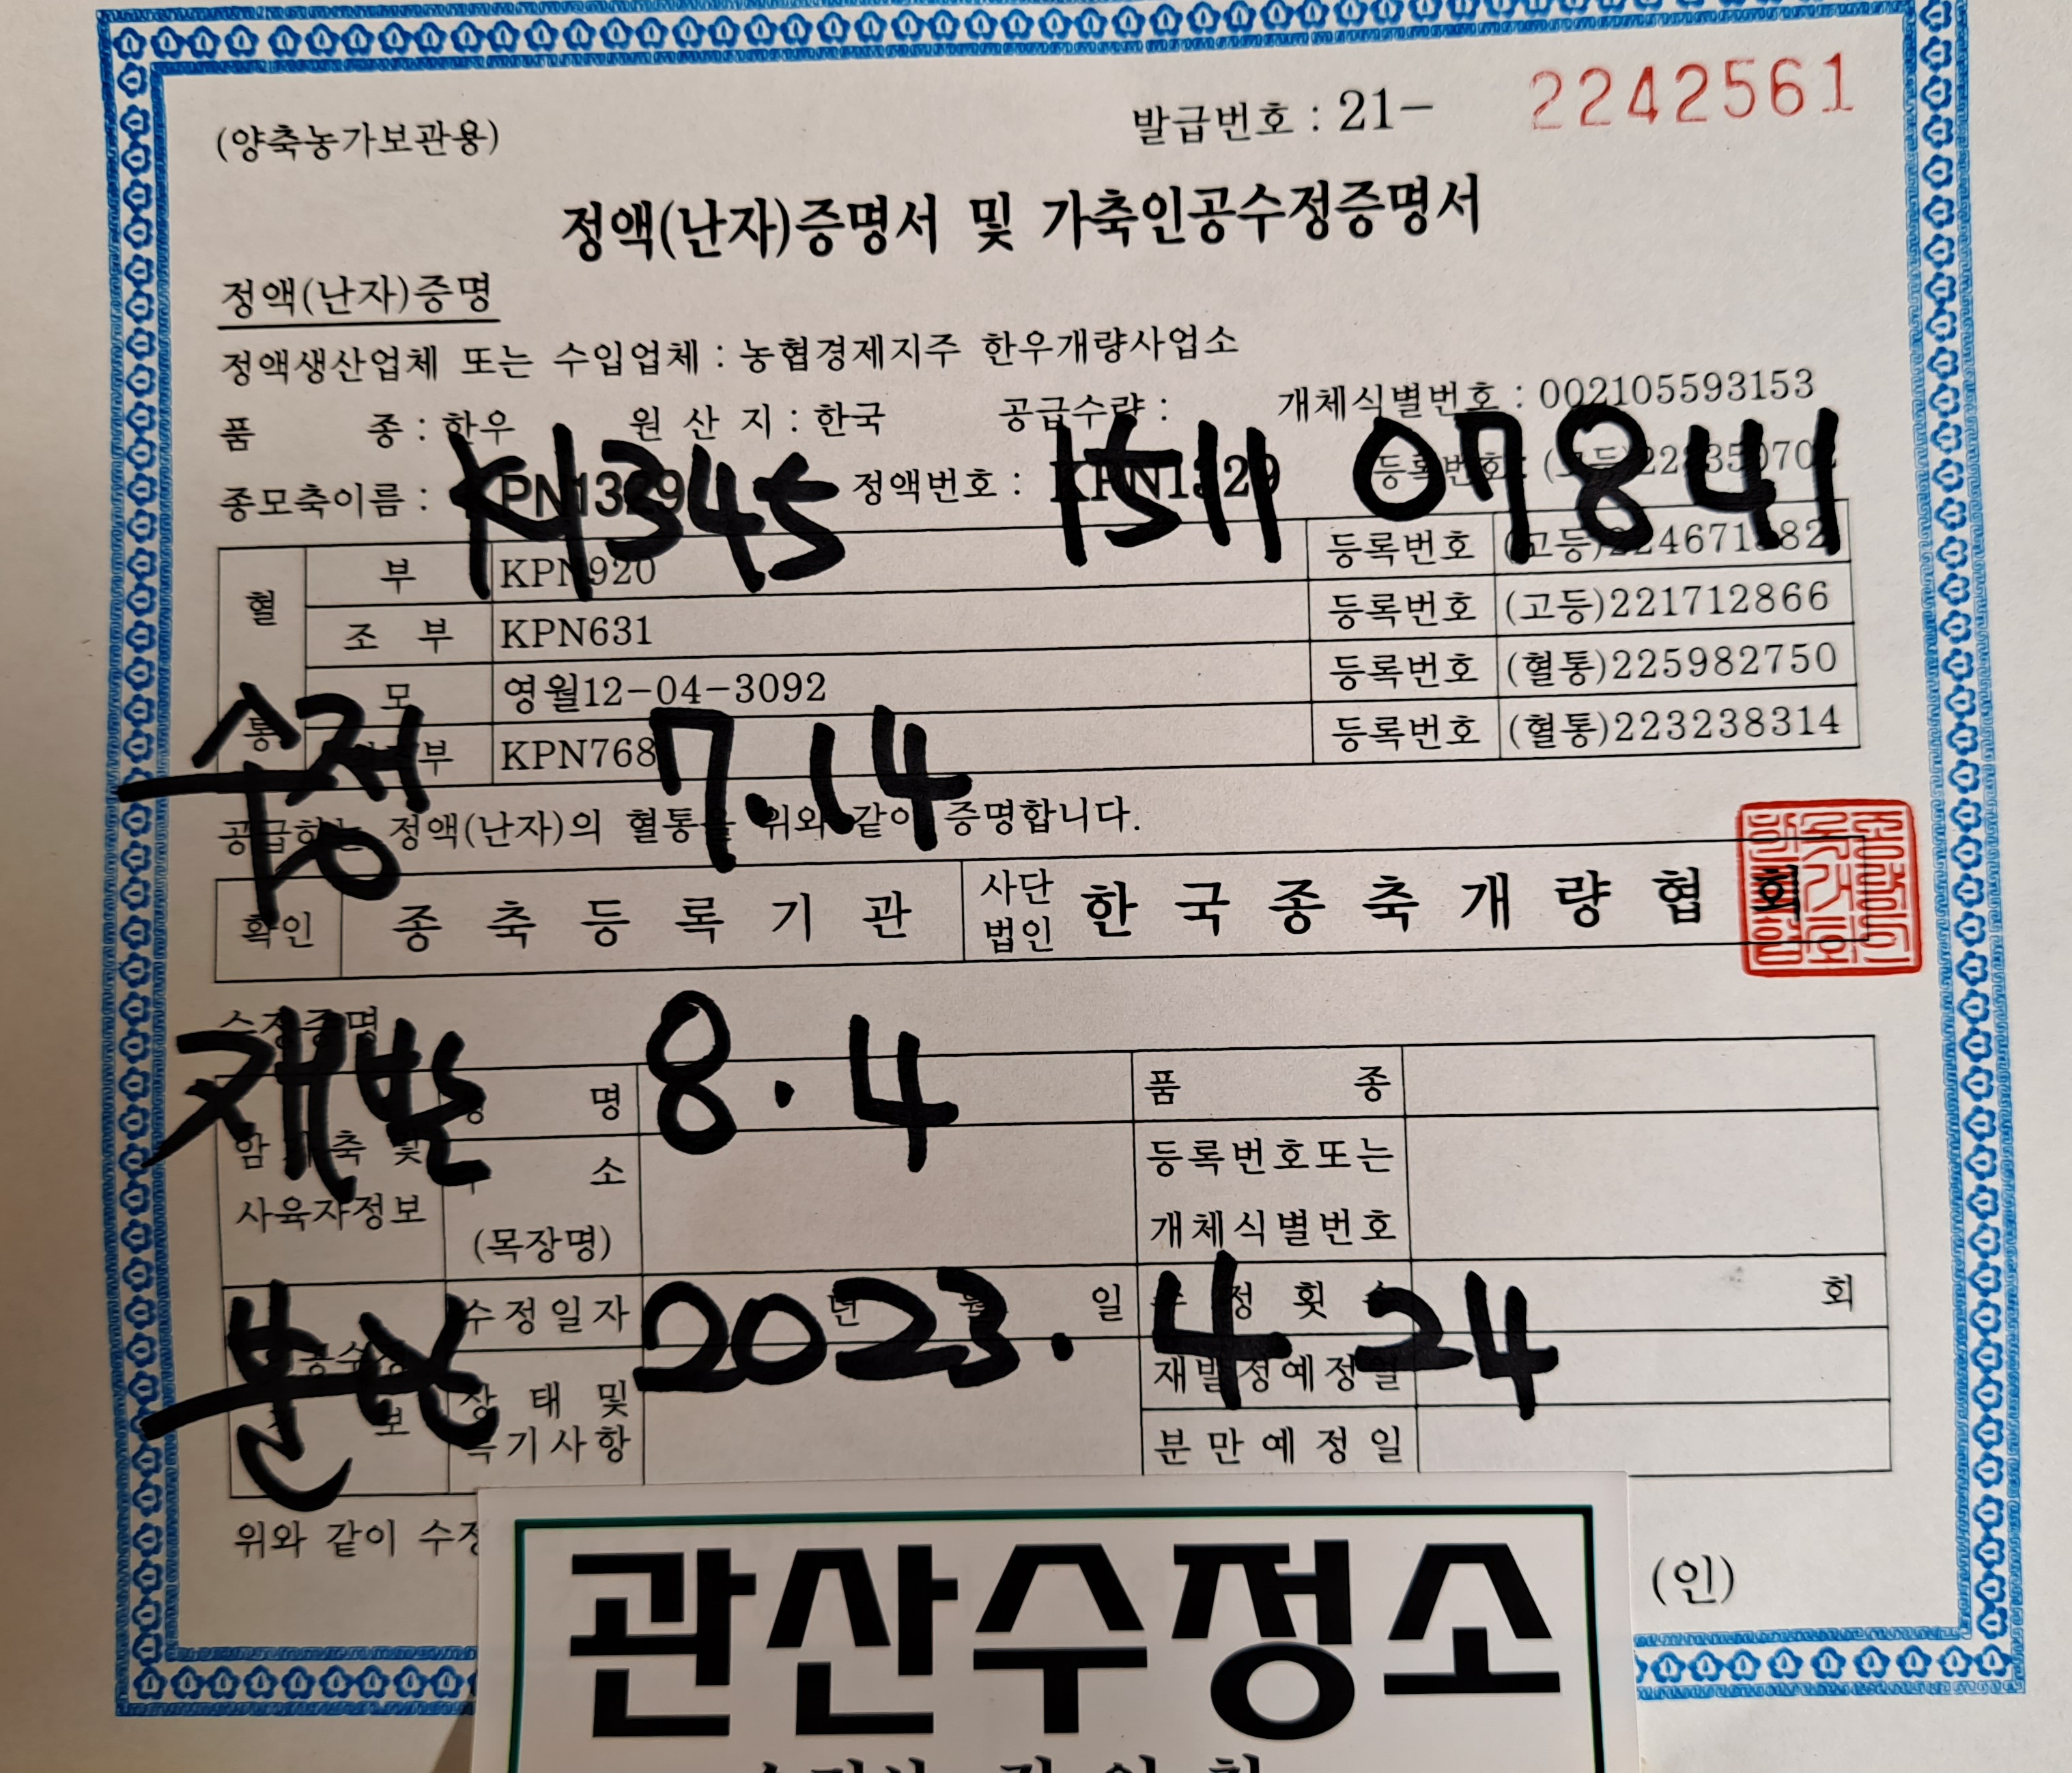 (양축농가보관용) 발급번호 : 21- 2242561
정액(난자)증명서 및 가축인공수정증명서
정액(난자)증명
정액생산업체 또는 수입업체 : 농협경제지주 한우개량사업소
품 종 : 한우 원 산 지 : 한국 공급수량 : 개체식별번호 : 002105593153
K1345 1511 07841
종모축이름 : 정액번호 : KPN1329 등록번호 :
혈통
부 KPN920 등록번호
조 부 KPN631 등록번호 (고등)221712866
모 영월12-04-3092 등록번호 (혈통)225982750
부 KPN768 등록번호 (혈통)223238314
수정 7.14
공급하는 정액(난자)의 혈통을 위와 같이 증명합니다.
확인 종축등록기관 사단법인 한국종축개량협회
수정증명
재발 8.4
명 품 종
암 축 및 사육자정보
소 (목장명) 등록번호또는 개체식별번호
분만 2023.4.24
수정일자 년 월 일 정 횟 회
상 태 및 특기사항 재발정예정일
분만예정일
위와 같이 수정
(인)
관산수정소